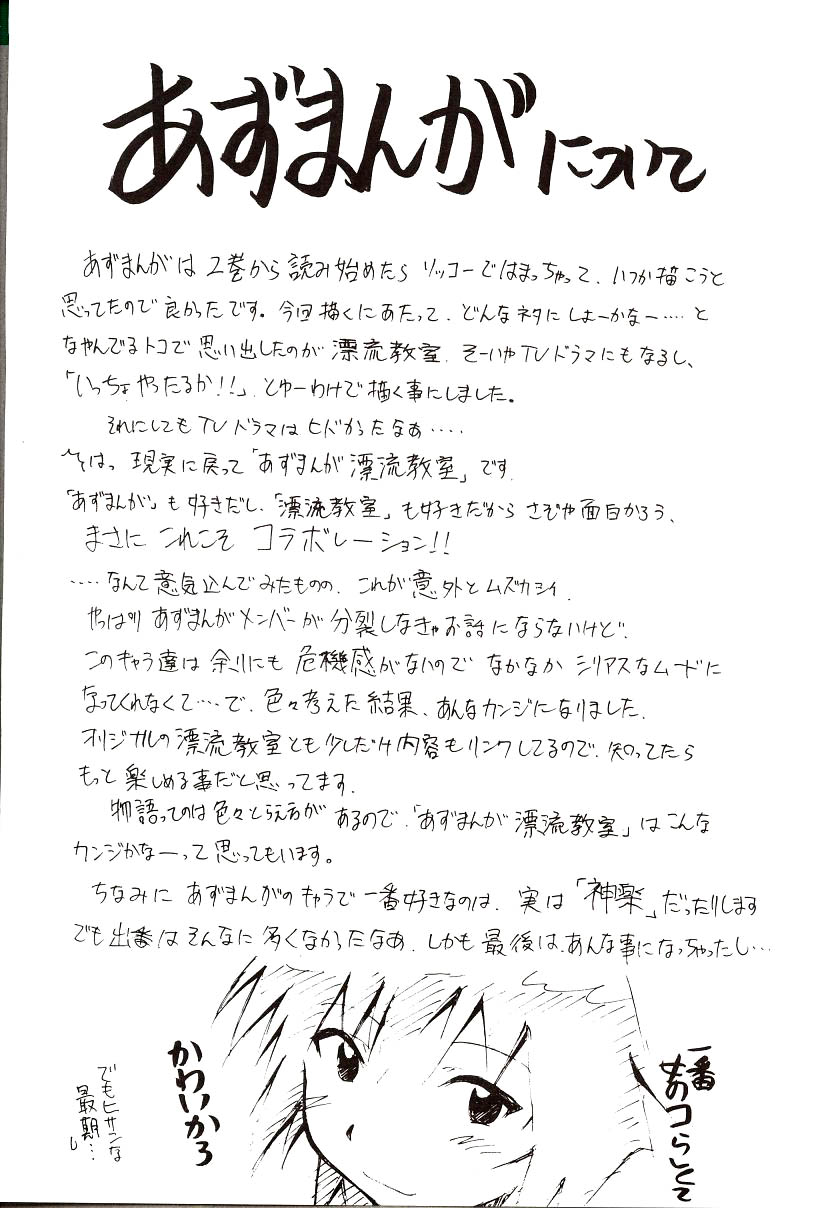 あずまんがについて
あずまんがは2巻から読み始めたらソッコーではまっちゃって、いつか描こうと
思ってたので良かったです。今回描くにあたって、どんなネタにしよーかなー‥‥と
なやんでるトコで思い出したのが漂流教室、そーいやTVドラマにもなるし、
「いっちょやったるか!!」、とゆーわけで描く事にしました。
それにしてもTVドラマはヒドかったなあ‥‥
現実に戻って「あずまんが漂流教室」です。
「あずまんが」も好きだし、「漂流教室」も好きだからさぞや面白かろう、
まさにこれこそコラボレーション!!
‥‥なんて意気込んでみたものの、これが意外とムズカシイ。
やっぱりあずまんがメンバーが分裂しなきゃお話にならないけど、
このキャラ達は余りにも危機感がないのでなかなかシリアスなムードに
なってくれなくて‥‥で、色々考えた結果、あんなカンジになりました。
オリジナルの漂流教室とも少しだけ内容もリンクしてるので、知ってたら
もっと楽しめる事だと思ってます。
物語ってのは色々とらえ方があるので、「あずまんが漂流教室」はこんな
カンジかなーって思ってもいます。
ちなみにあずまんがのキャラで一番好きなのは、実は「神楽」だったりします
でも出番はそんなに多くなかったなあ、しかも最後は、あんな事になっちゃったし…
一番
女のコらしくて
かわいかろ
でもヒサンな
最期…